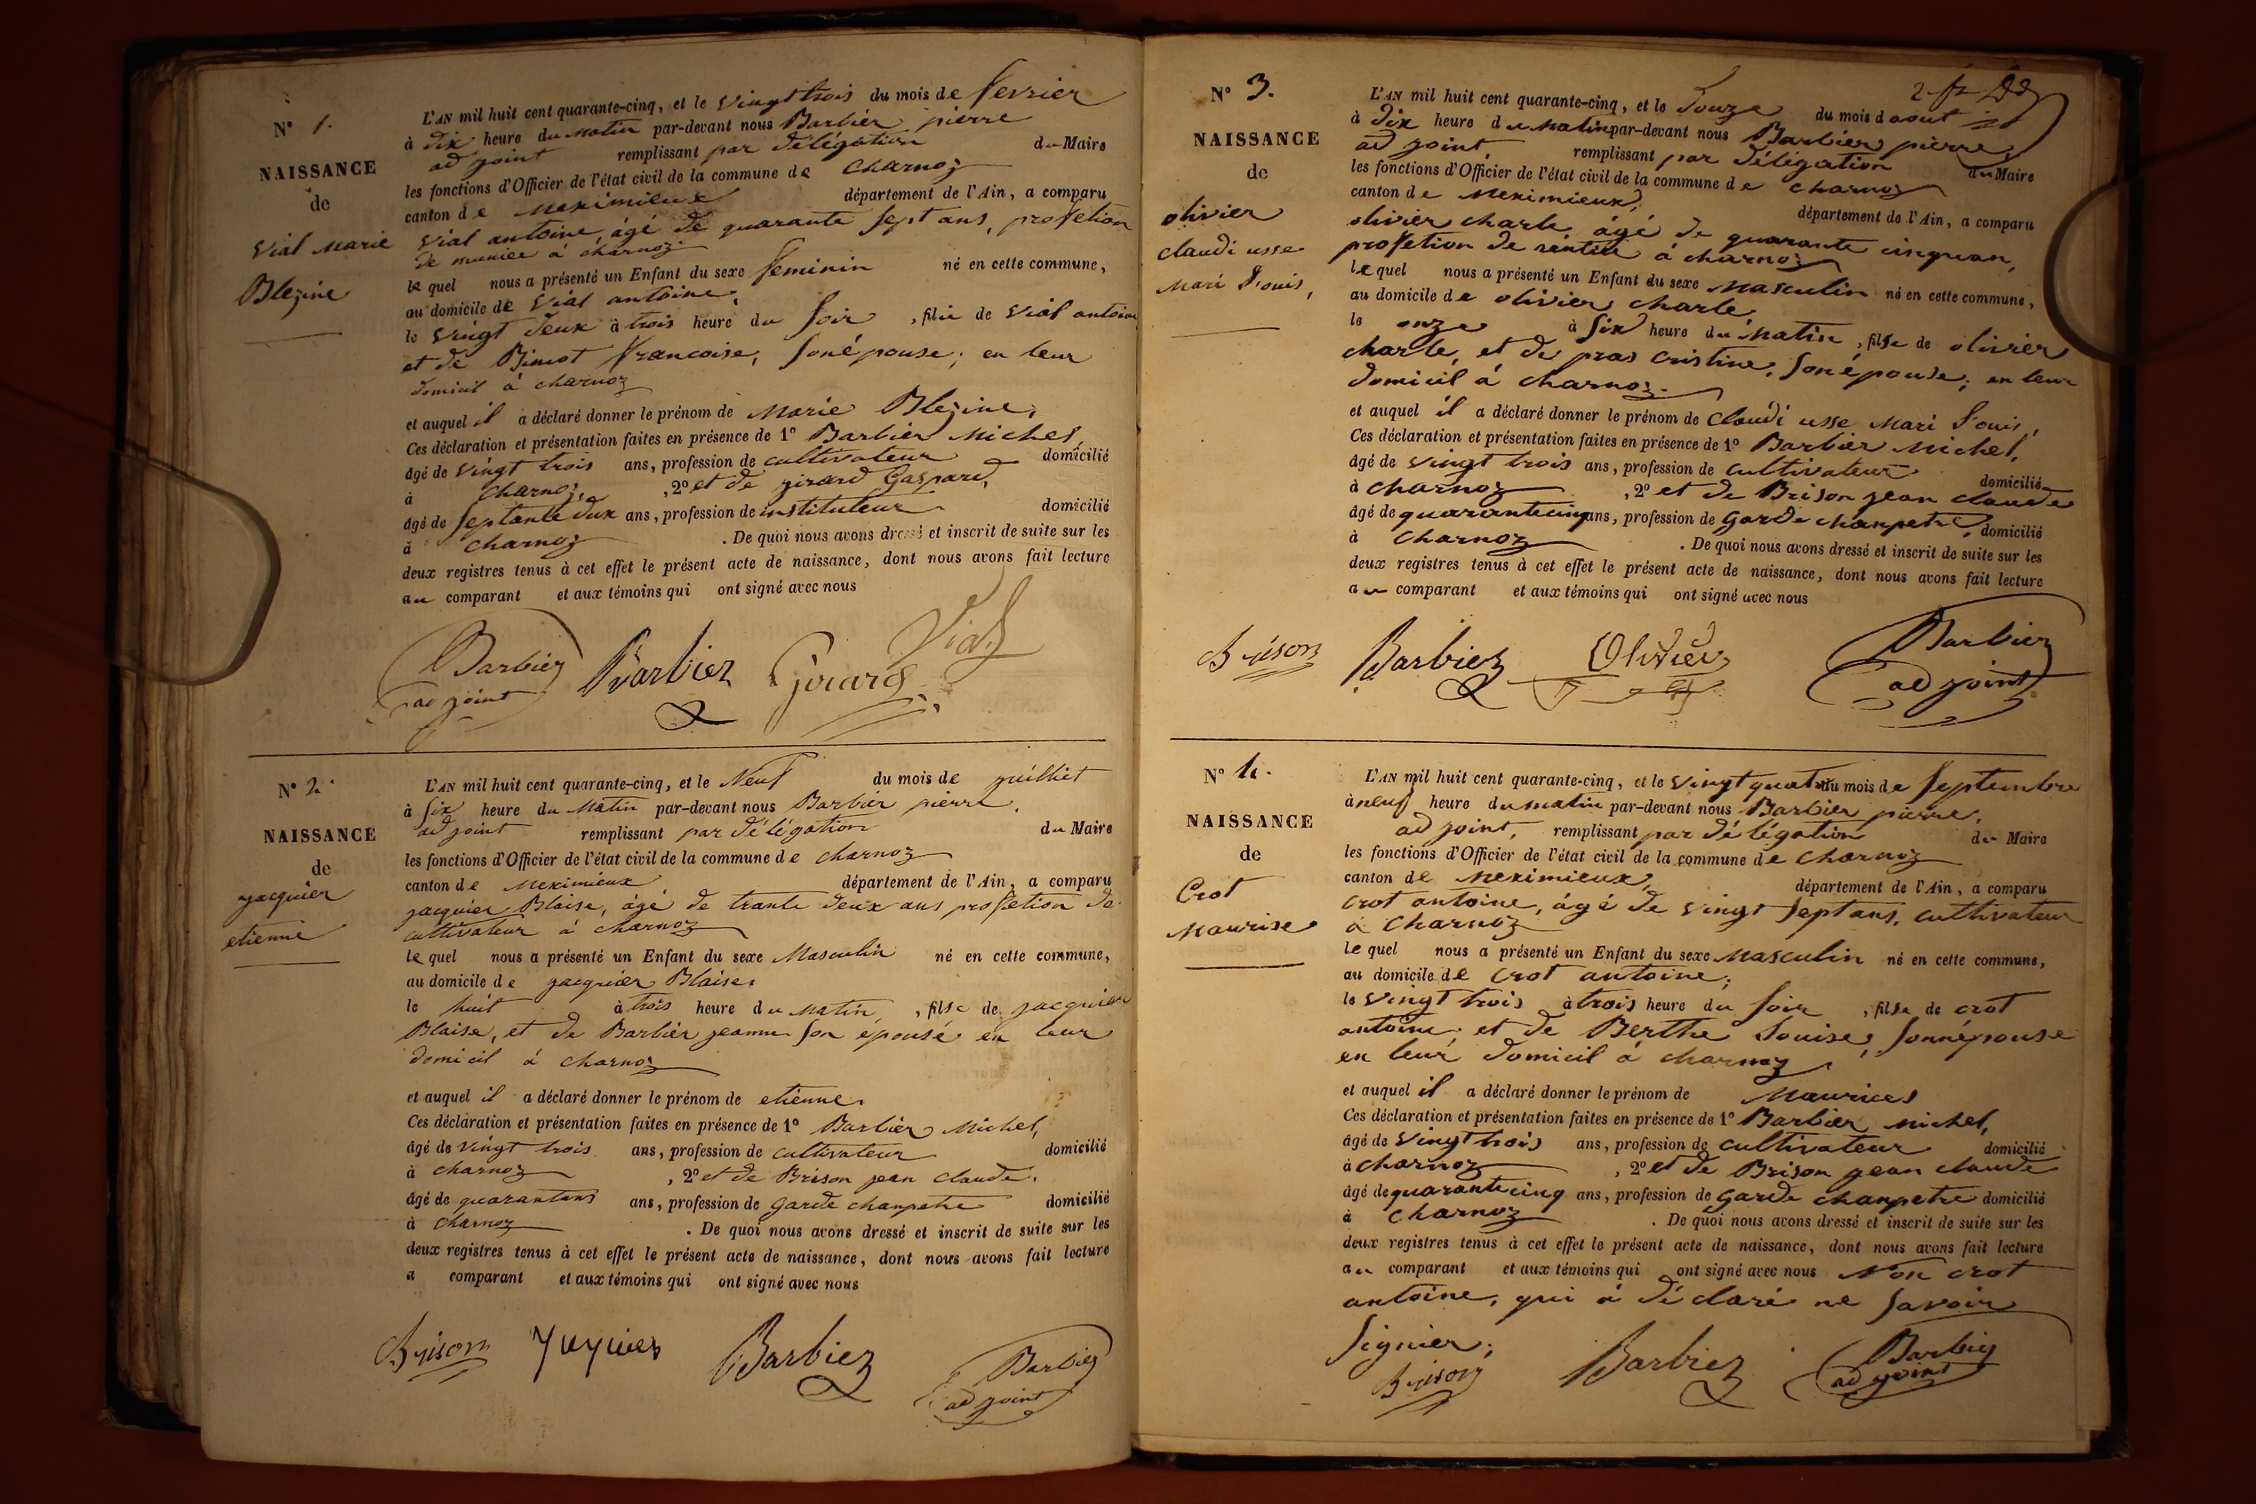 N° 1.
NAISSANCE
de
Vial Marie
Blezine
L'AN mil huit cent quarante-cinq, et le vingt trois du mois de fevrier
à dix heure du matin par-devant nous Barbier pierre
adjoint remplissant par délégation du Maire
les fonctions d'Officier de l'état civil de la commune de charnoz
canton de meximieux département de l'Ain, a comparu
Vial antoine âgé de quarante sept ans, profetion
de munier à charnoz
le quel nous a présenté un Enfant du sexe feminin né en cette commune,
au domicile de Vial antoine,
le vingt deux à trois heure du soir, fille de Vial antoine
et de Binot francoise, son épouse; en leur
domicil à charnoz
et auquel il a déclaré donner le prénom de Marie Blezine,
Ces déclaration et présentation faites en présence de 1° Barbier Michel,
âgé de vingt trois ans, profession de cultivateur domicilié
à charnoz, 2° et de girard Gaspard,
âgé de septante deux ans, profession de instituteur domicilié
à charnoz. De quoi nous avons dressé et inscrit de suite sur les
deux registres tenus à cet effet le présent acte de naissance, dont nous avons fait lecture
au comparant et aux témoins qui ont signé avec nous
Vial
Barbier Barbier Girard
adjoint
N° 2.
NAISSANCE
de
jacquier
etienne
L'AN mil huit cent quarante-cinq, et le Neuf du mois de juilliet
à six heure du matin par-devant nous Barbier pierre,
adjoint remplissant par délégation du Maire
les fonctions d'Officier de l'état civil de la commune de charnoz
canton de meximieux département de l'Ain, a comparu
jacquier Blaise, âgé de trante deux ans profetion de
cultivateur à charnoz
le quel nous a présenté un Enfant du sexe Masculin né en cette commune,
au domicile de jacquier Blaise,
le huit à trois heure du matin, fils de jacquier
Blaise, et de Barbier jeanne son épouse en leur
domicil à charnoz
et auquel il a déclaré donner le prénom de etienne,
Ces déclaration et présentation faites en présence de 1° Barbier Michel,
âgé de vingt trois ans, profession de cultivateur domicilié
à charnoz, 2° et de Brison jean claude,
âgé de quarantans ans, profession de garde champetre domicilié
à charnoz. De quoi nous avons dressé et inscrit de suite sur les
deux registres tenus à cet effet le présent acte de naissance, dont nous avons fait lecture
a comparant et aux témoins qui ont signé avec nous
Brison Barbier Barbier
adjoint
N° 3.
NAISSANCE
de
olivier
claudi usse
Mari Louis,
L'AN mil huit cent quarante-cinq, et le Douze du mois d aout
à dix heure du matin par-devant nous Barbier pierre,
adjoint, remplissant par délégation du Maire
les fonctions d'Officier de l'état civil de la commune de charnoz
canton de meximieux, département de l'Ain, a comparu
olivier charle, âgé de quarante cinquan,
profetion de rentier à charnoz
le quel nous a présenté un Enfant du sexe masculin né en cette commune,
au domicile de olivier charle
le onze à six heure du matin, fils de olivier
charle, et de pras cristine, son épouse; en leur
domicil à charnoz.
et auquel il a déclaré donner le prénom de claudi usse Mari Louis,
Ces déclaration et présentation faites en présence de 1° Barbier Michel,
âgé de vingt trois ans, profession de cultivateur domicilié
à charnoz, 2° et de Brison jean claude
âgé de quarante cinq ans, profession de garde champetre, domicilié
à charnoz. De quoi nous avons dressé et inscrit de suite sur les
deux registres tenus à cet effet le présent acte de naissance, dont nous avons fait lecture
au comparant et aux témoins qui ont signé avec nous
Brison Barbier Olivier Barbier
adjoint
N° 4.
NAISSANCE
de
Crot
Maurise
L'AN mil huit cent quarante-cinq, et le vingt quatre du mois de septembre
à neuf heure du matin par-devant nous Barbier pierre,
adjoint, remplissant par délégation du Maire
les fonctions d'Officier de l'état civil de la commune de charnoz
canton de meximieux, département de l'Ain, a comparu
crot antoine, âgé de vingt sept ans, cultivateur
à charnoz
le quel nous a présenté un Enfant du sexe masculin né en cette commune,
au domicile de crot antoine,
le vingt trois à trois heure du soir, fils de crot
antoine, et de Berthe Louise, sonnépouse
en leur domicil à charnoz
et auquel il a déclaré donner le prénom de Maurices
Ces déclaration et présentation faites en présence de 1° Barbier michel,
âgé de vingt trois ans, profession de cultivateur domicilié
à charnoz, 2° et de Brison jean claude
âgé de quarante cinq ans, profession de garde champetre domicilié
à charnoz. De quoi nous avons dressé et inscrit de suite sur les
deux registres tenus à cet effet le présent acte de naissance, dont nous avons fait lecture
au comparant et aux témoins qui ont signé avec nous Non crot
antoine, qui à déclaré ne savoir
signier;
Brison Barbier Barbier
adjoint